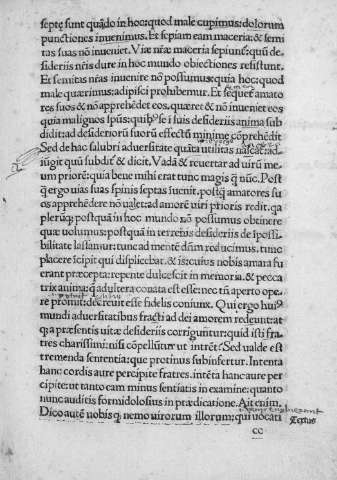 septę sunt quãdo in hoc: quod male cupimus: dolorum
punctiones inuenimus. Et sepiam eam maceria: & semi
tas suas nõ inueniet. Viæ nr̃æ maceria sepiunt̃: quũ de-
sideriis nr̃is dure in hoc mundo obiectiones resistunt.
Et semitas nr̃as inuenire nõ possumus: quia hoc: quod
male quærimus: adipisci prohibemur. Et sequet̃ amato
res suos & nõ apprehēdet eos. quæret & nõ inueniet eos
quia malignos ipũs: quibꝰ se i suis desideriis anima sub
didit: ad desideriorũ suorũ effectũ minime cōprehēdit
Sed de hac salubri aduersitate quãta utilitas nascat̃: ad-
iũgit quũ subdit̃ & dicit. Vadã & reuertar ad uirũ me-
um priorē: quia bene mihi erat tunc magis q̃ nũc. Post
q̃ ergo uias suas spinis septas iuenit. postq̃ amatores su
os apprehēdere nõ ualet: ad amorē uiri prioris redit. qa
plerũq; postquã in hoc mundo nõ possumus obtinere
quæ uolumus: postquã in terrenis desideriis de ĩpossi-
bilitate lassamur: tunc ad mentē dñm reducimus. tunc
placere icipit qui displicebat. & is: cuius nobis amara fu
erant præcepta: repente dulcescit in memoria. & pecca
trix anima: q̃ adultera conata est esse: nec tñ aperto ope-
re promit: decreuit esse fidelis coniunx. Qui ergo huiꝰ
mundi aduersitatibus fracti ad dei amorem redeunt: at
q; a præsentis uitæ desideriis corriguntur: quid isti fra-
tres charissimi: nisi cōpellũtur ut intrēt: Sed ualde est
tremenda sententia: que protinus subinfertur. Intenta
hanc cordis aure percipite fratres. intēta hanc aure per
cipite: ut tanto eam minus sentiatis in examine: quanto
nunc auditis formidolosius in prædicatione. Ait enim.
Dico autē nobis q. nemo uirorum illorum: qui uocati
Textus
cc